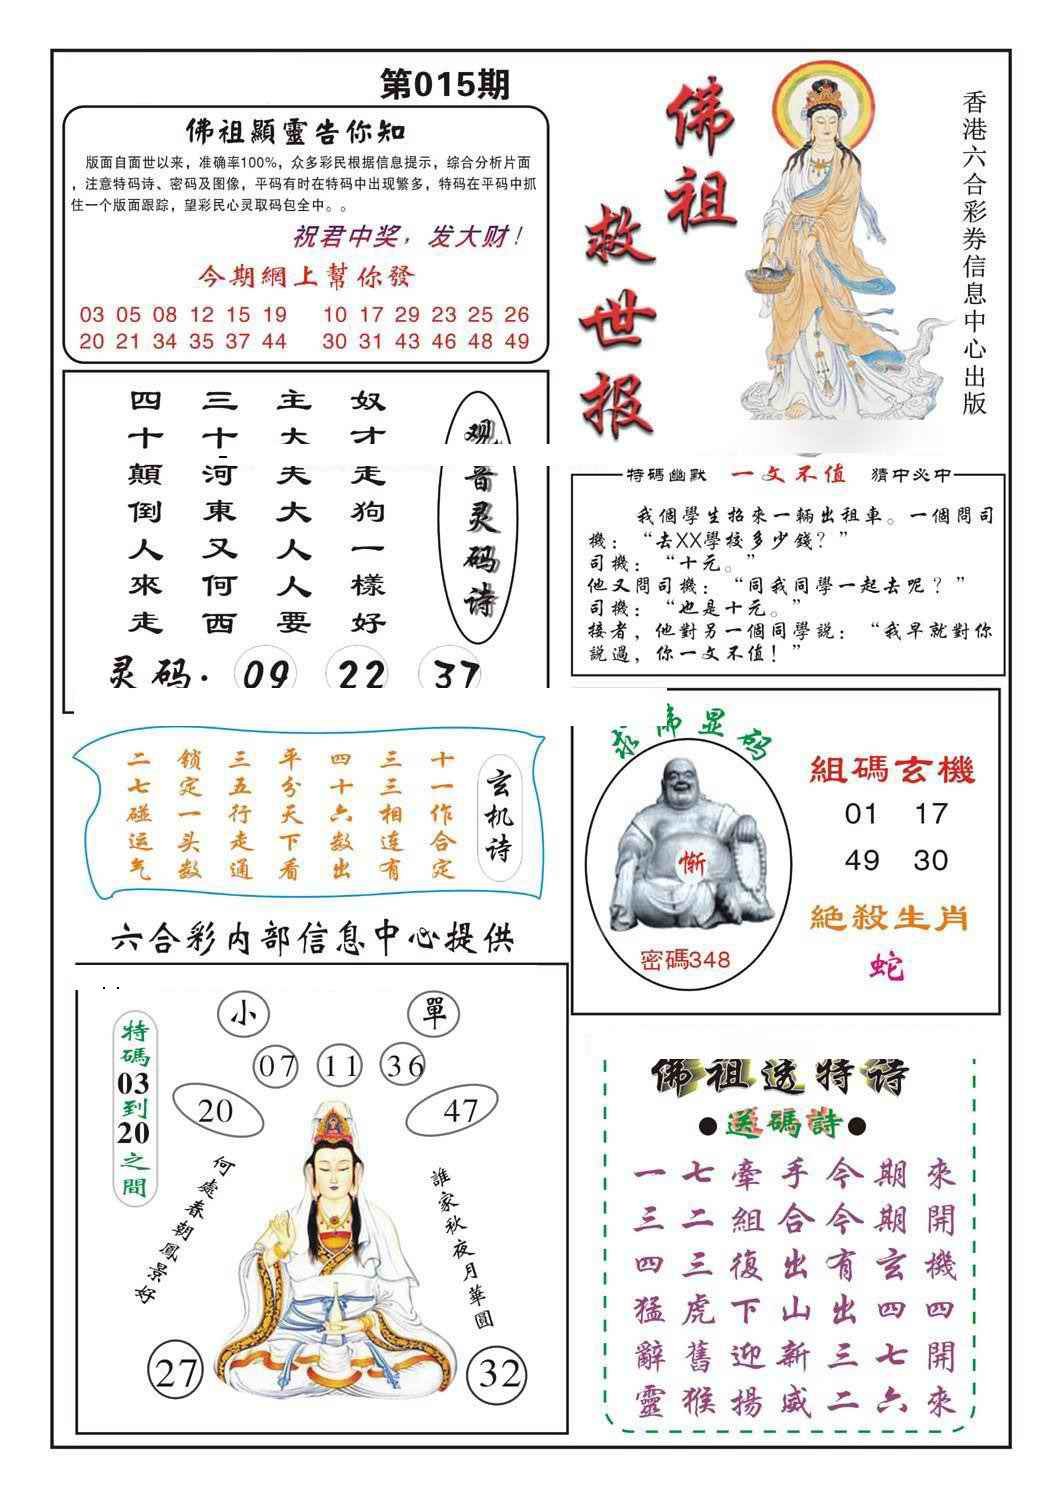 第015期
佛祖顯靈告你知
版面自面世以来，准确率100%，众多彩民根据信息提示，综合分析片面
，注意特码诗、密码及图像，平码有时在特码中出现繁多，特码在平码中抓
住一个版面跟踪，望彩民心灵取码包全中。。
祝君中奖，发大财！
今期網上幫你發
03 05 08 12 15 19 10 17 29 23 25 26
20 21 34 35 37 44 30 31 43 46 48 49
佛祖
救世报
香港六合彩券信息中心出版
观音灵码诗
奴才走狗一樣好
主大夫大人人要
三十河東又何西
四十顛倒人來走
灵码.
09 22 37
特碼幽默 一文不值 猜中必中
我個學生招來一輛出租車。一個問司
機：“去XX學校多少錢？”
司機：“十元。”
他又問司機：“同我同學一起去呢？”
司機：“也是十元。”
接者，他對另一個同學説：“我早就對你
説過，你一文不值！”
玄机诗
十一作合定
三三相连有
四十六数出
平分天下看
三五行走通
锁定一头数
二七碰运气
六合彩内部信息中心提供
显码
惭
密碼348
組碼玄機
01 17
49 30
絕殺生肖
蛇
特碼03到20之間
小 單
07 11 36
20 47
何處春朝鳳景好
誰家秋夜月華圓
27 32
佛祖透特诗
●送碼詩●
一七牽手今期來
三二組合今期開
四三復出有玄機
猛虎下山出四四
辭舊迎新三七開
靈猴揚威二六來